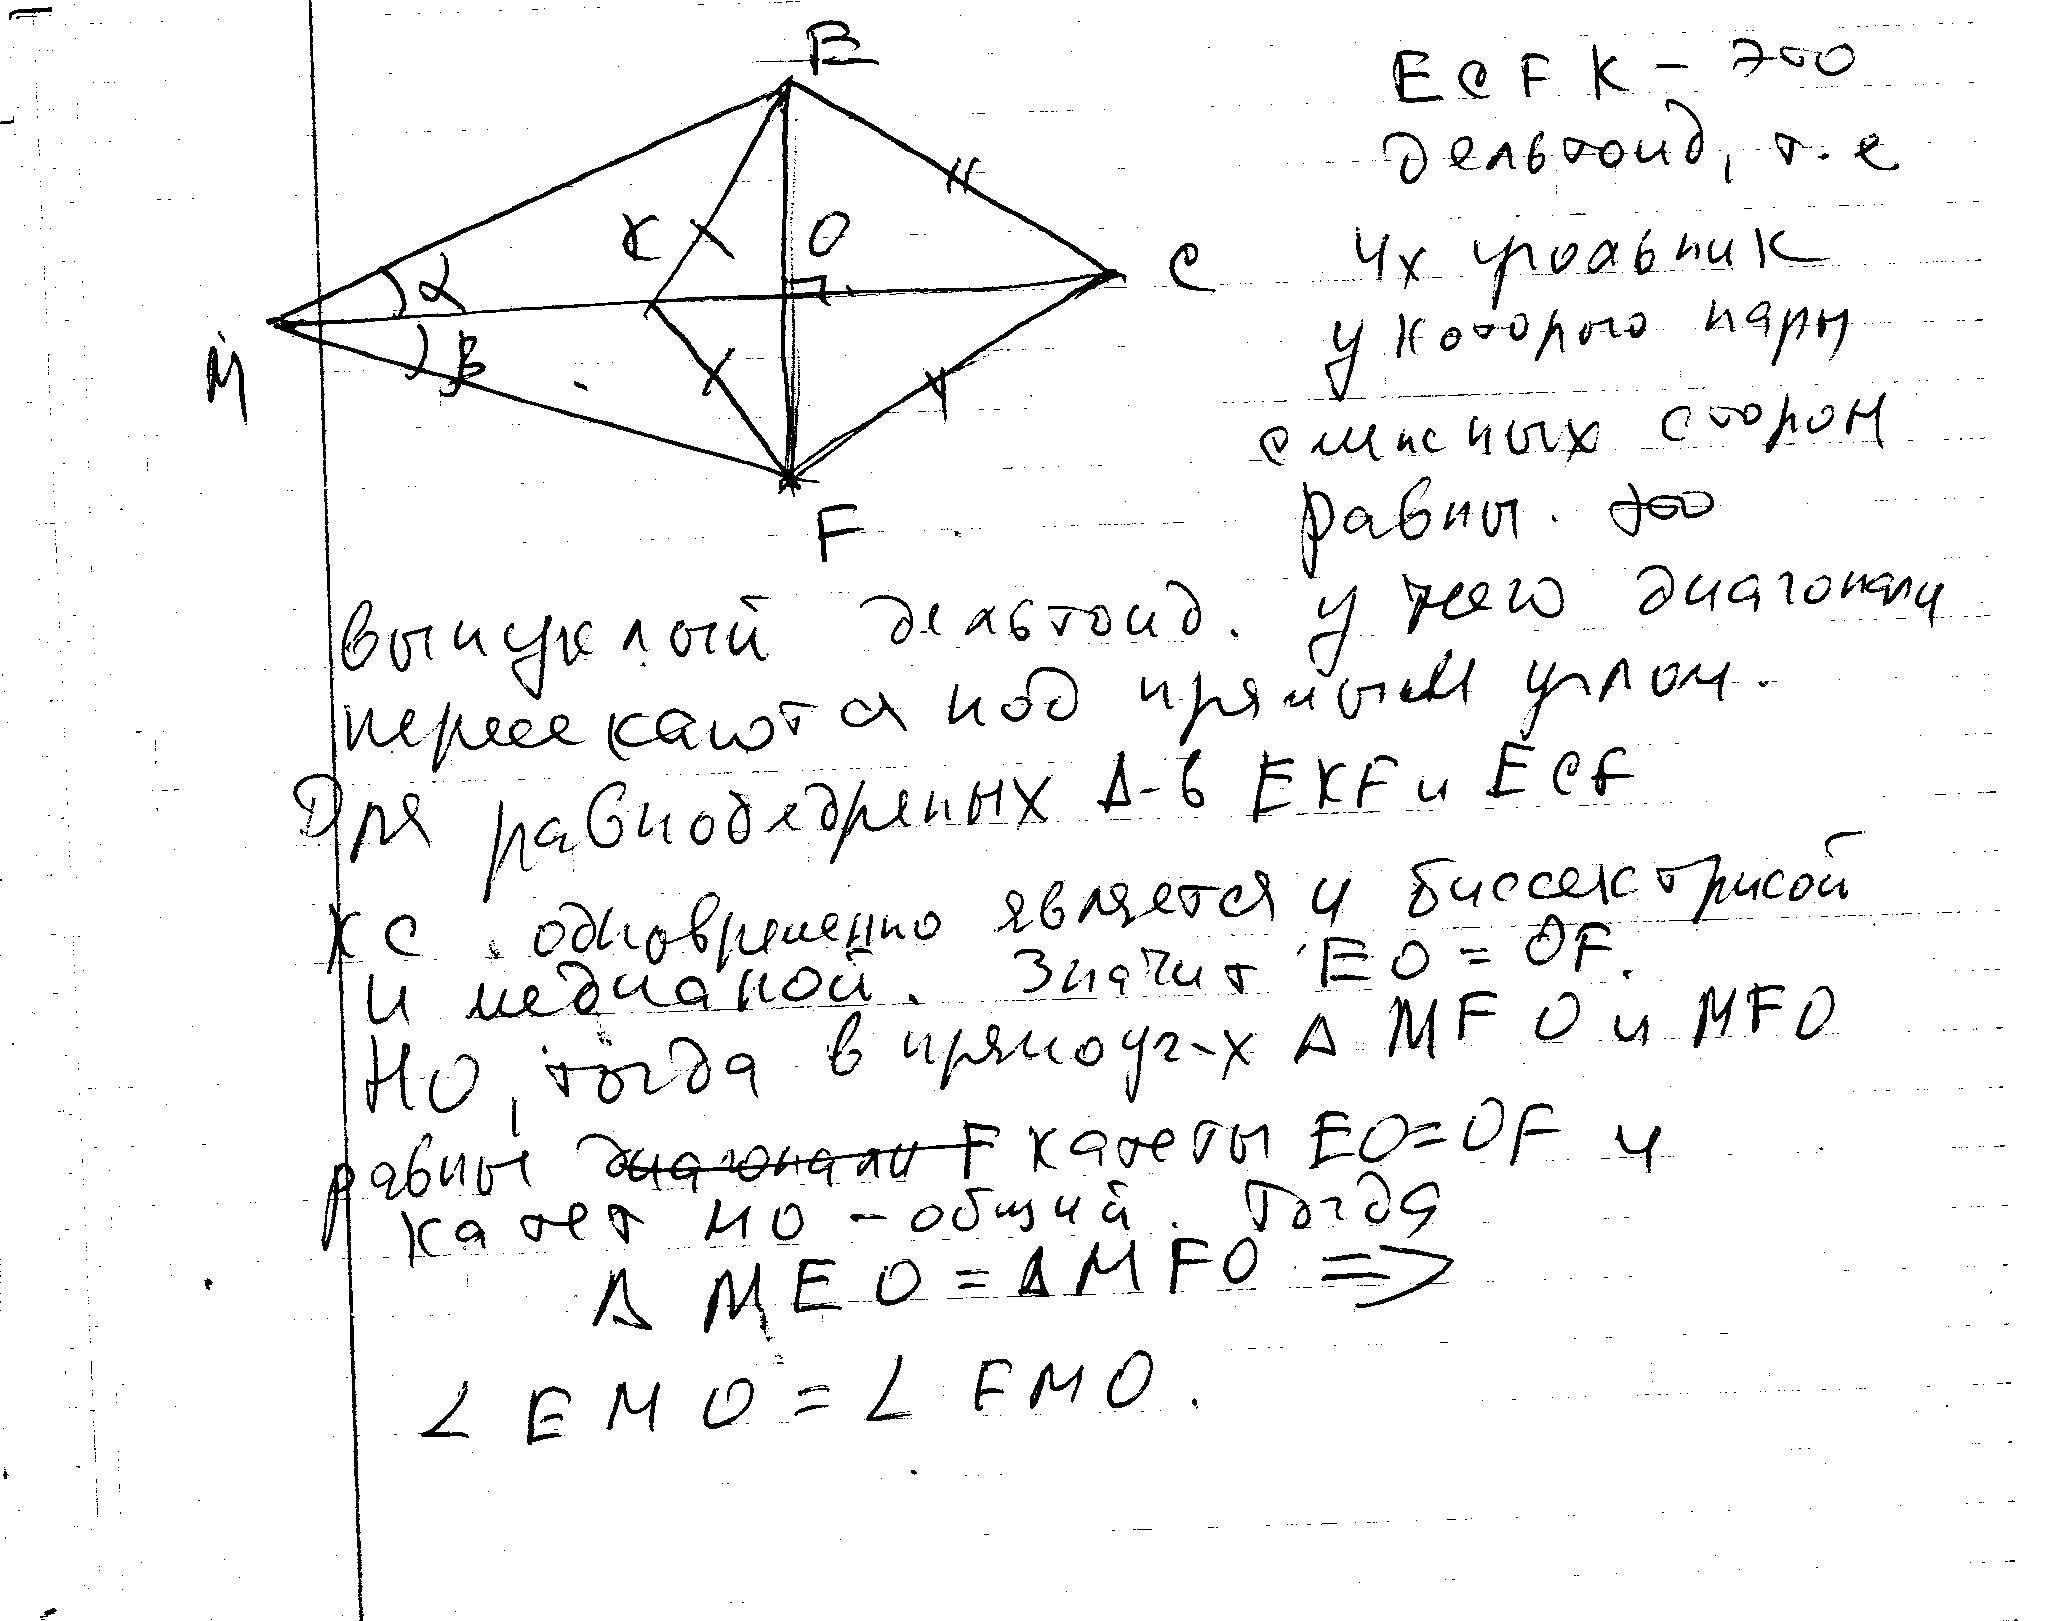 E
K
O
C
α
β
M
F
ECFK - это
дельтоид, т.е
4х угольник
у которого пары
смежных сторон
равны. это
выпуклый дельтоид. у него диагонали
пересекаются под прямым углом.
Для равнобедреных Δ-в EKF и ECF
KC одновременно является и биссектрисой
и медианой. Значит EO = OF.
НО, тогда в прямоуг-х Δ MFO и MFO
равны диагонали F катеты EO=OF и
катет MO - общий. Тогда
Δ MEO = Δ MFO =>
∠ EMO = ∠ FMO.